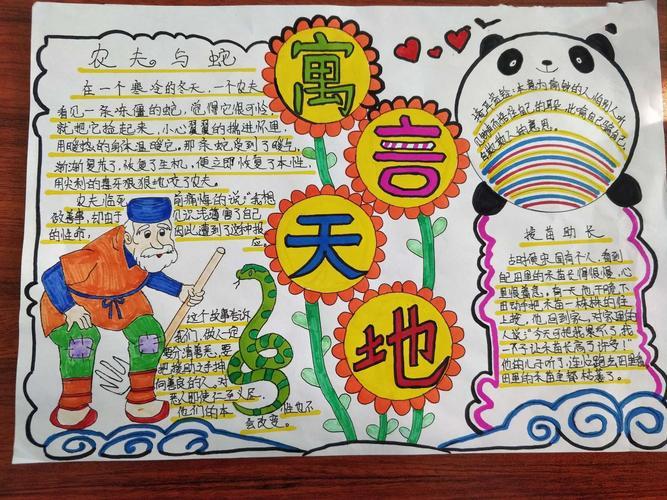 农夫与蛇
在一个寒冷的冬天,一个农夫
看见一条冻僵的蛇,觉得它很可怜,
就把它拾起来,小心翼翼的揣进怀里,
用暖热的身体温暖它,那条蛇受到了暖气
渐渐复苏了,恢复了生机,便立即恢复了本性,
用尖利的毒牙狠狠地咬了农夫。
农夫临死前痛悔的说"我想
做善事,却由于见识浅薄害了自己
的性命,因此遭到了这种报应
这个故事告诉
我们,做人一定
要分清善恶,要
把援助之手伸
向善良的人,对
恶人即使仁至义尽
他们的本性也不
会改变。
寓言天地
掩耳盗铃:本意为偷钟的人怕别人听
自欺欺人的意思。
拔苗助长
古时候宋国有个人,看到
自己田里的禾苗长得很慢,心
里很着急,
拔,他回到家,对家里的
人说:今天可把我累坏了,我
一下子让禾苗长高了许多!
他的儿子听了,连忙跑去田里看
田里的禾苗全都枯萎了。